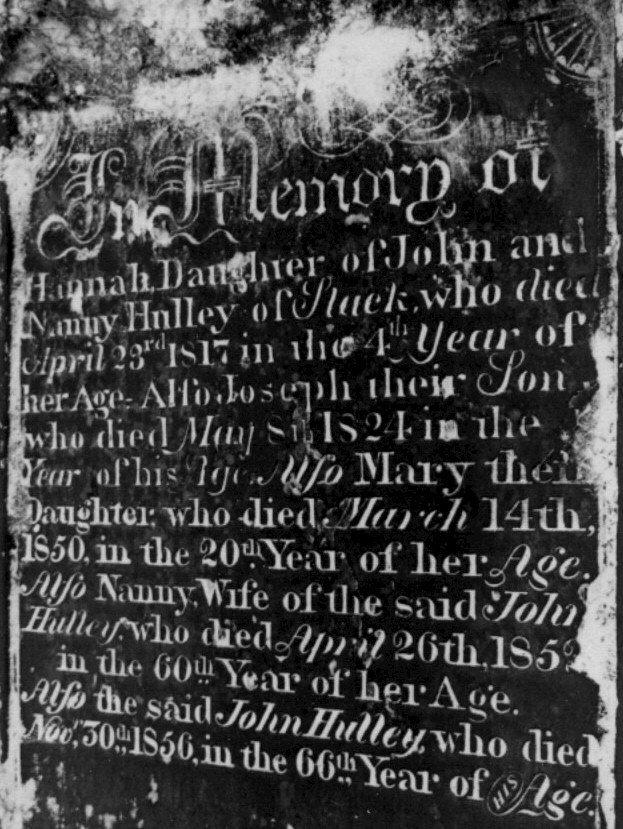 In Memory of
Hannah, Daughter of John and
Nanny Hulley of Slack, who died
April 23rd 1817 in the 4th Year of
her Age. Also Joseph their Son
who died May 8th 1824 in the
Year of his Age. Also Mary their
Daughter: who died March 14th,
1850, in the 20th Year of her Age.
Also Nanny, Wife of the said John
Hulley, who died April 26th, 185
in the 60th Year of her Age.
Also the said John Hulley, who died
Novr. 30th, 1856, in the 66th Year of HIS Age.